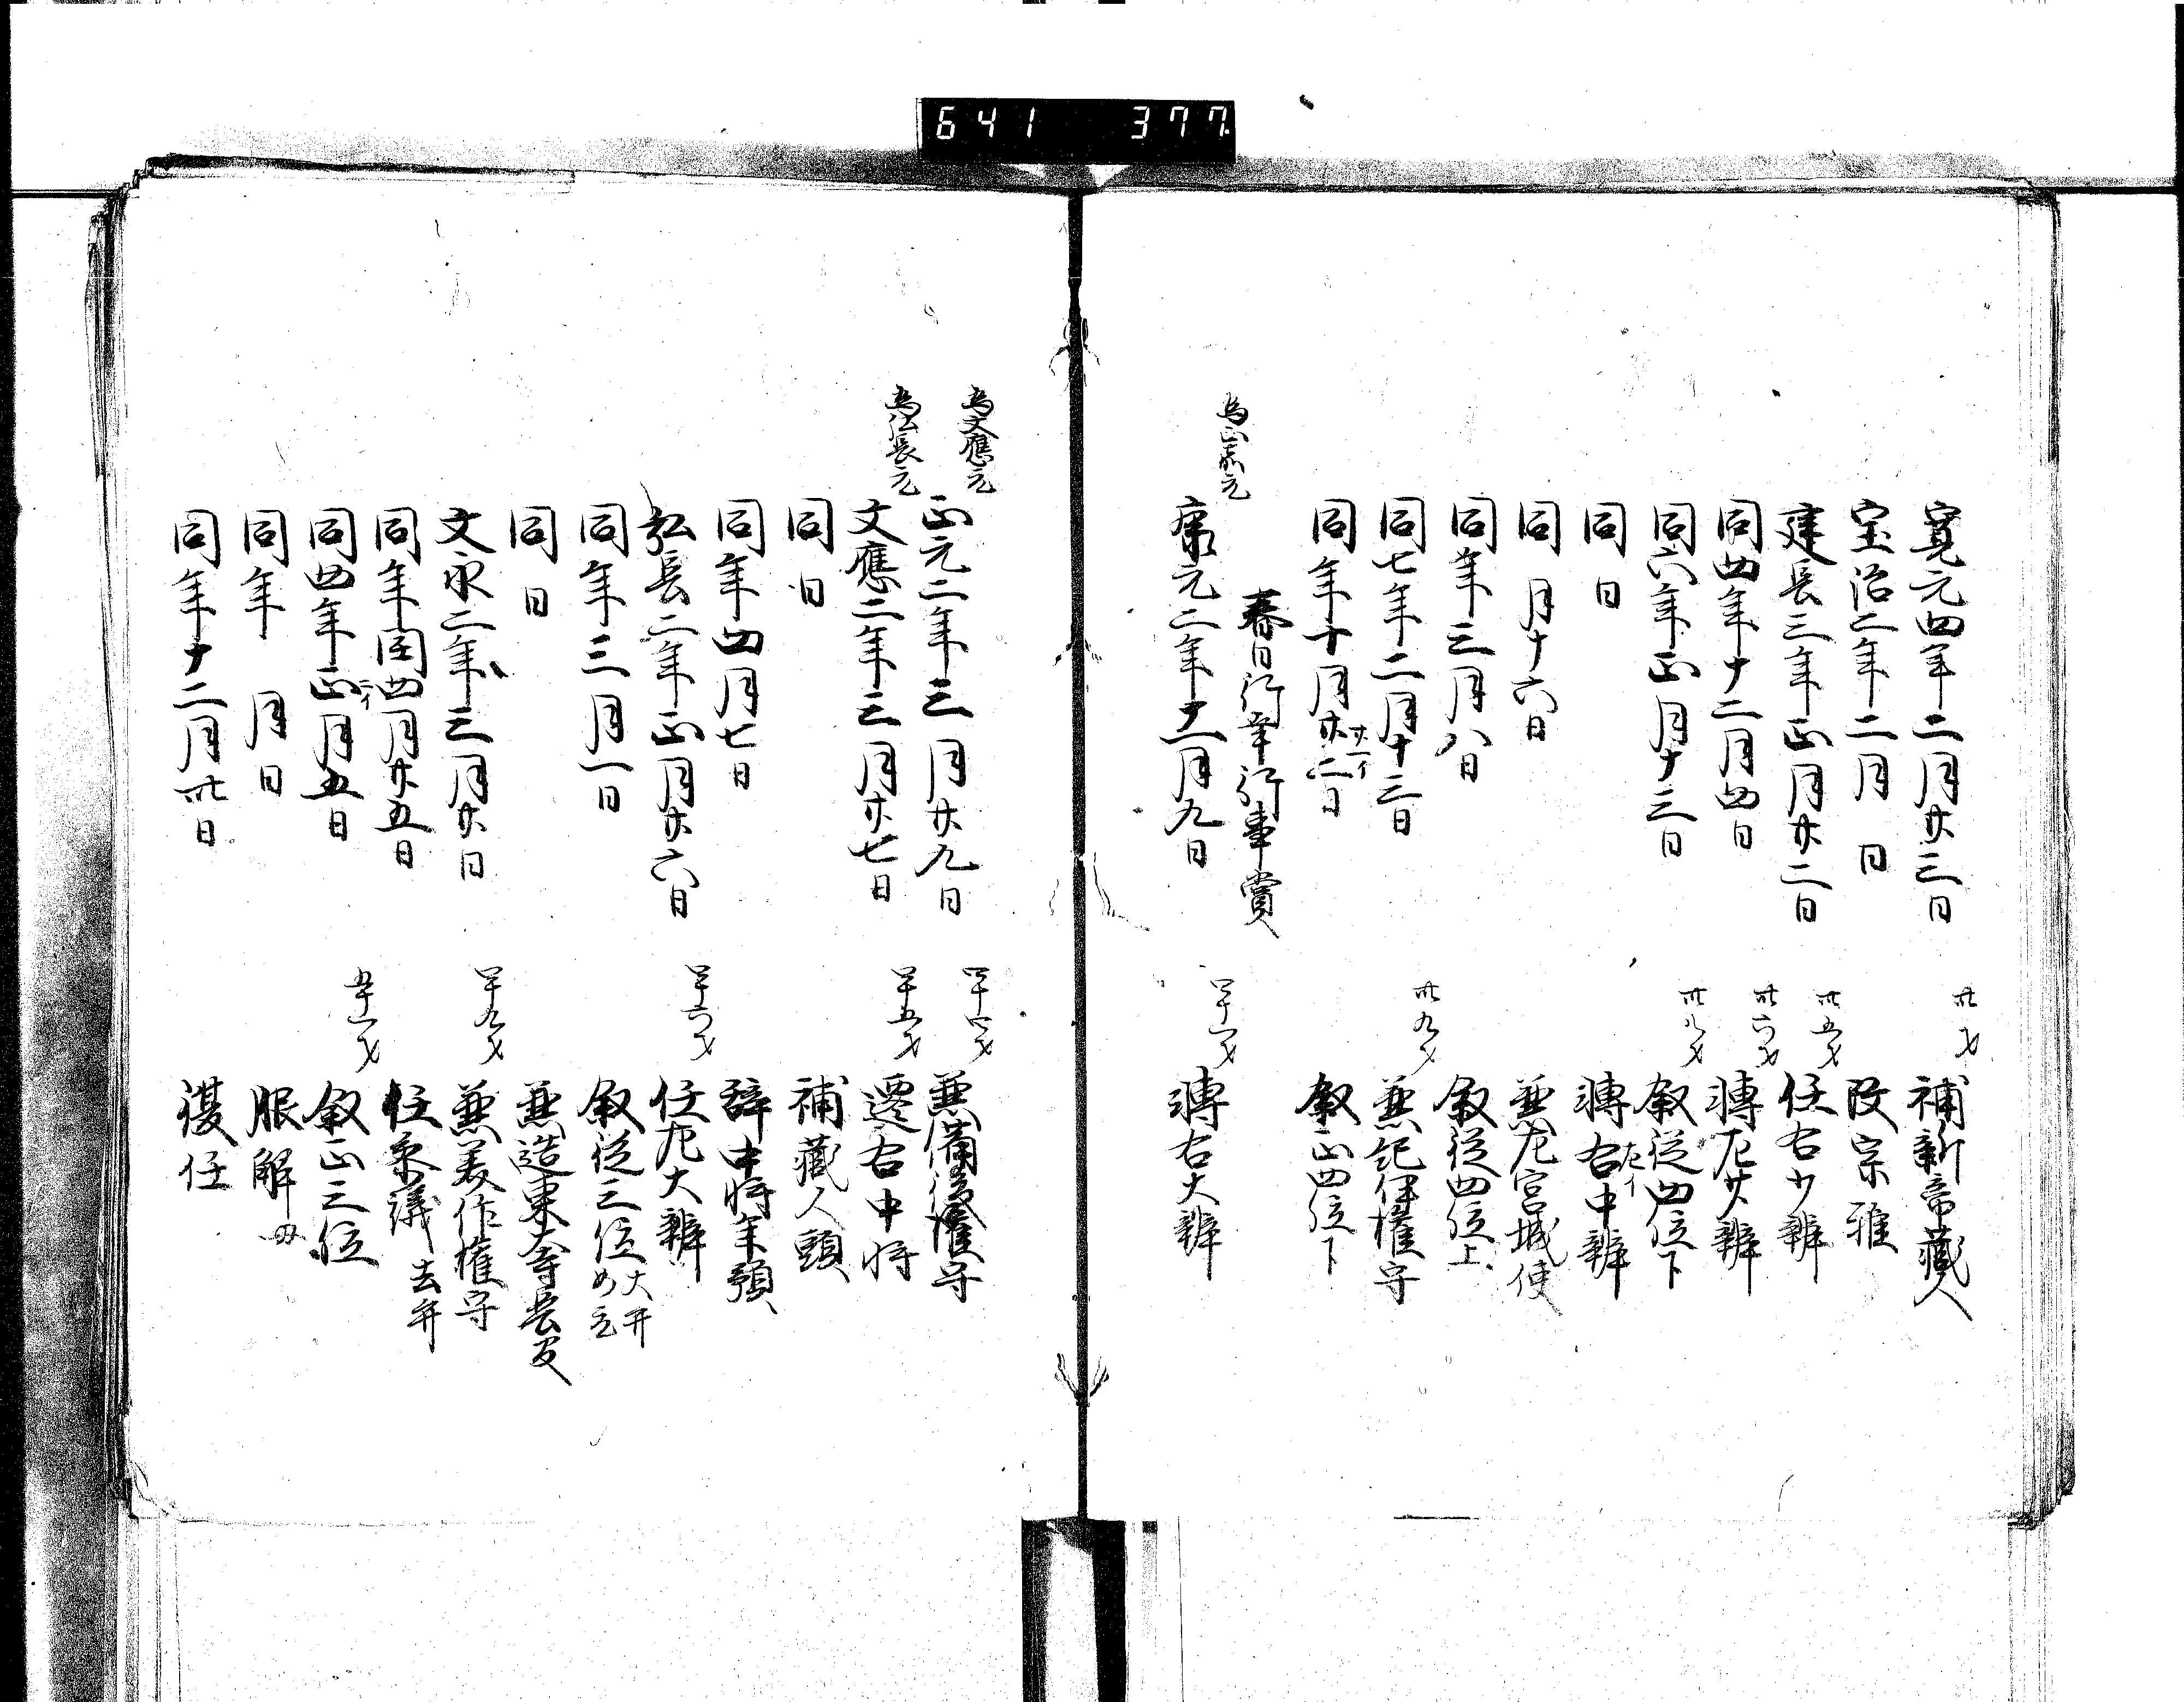 641 377
寛元四年二月廿三日 卅才 補新帝藏人
宝治二年二月 日 改宗雅
建長三年正月廿二日 卅五才 任右少辨
同四年十二月四日 卅六才 轉左少辨
同六年正月十三日 卅八才 叙從四位下
同日 轉右中辨 左イ
同 月十六日 兼左宮城使
同年三月八日 叙從四位上
同七年二月十三日 卅九才 兼紀伊權守
同年十月廿二日 廿一イ 叙正四位下
春日行幸行事賞
為正嘉元
康元二年十一月九日 四十一才 轉右大辨
為文應元
正元二年三月廿九日 四十四才 兼備後權守
為弘長元
文應二年三月廿七日 四十五才 遷右中将
同日 補藏人頭
同年四月七日 辞中将
弘長二年正月廿六日 四十六才 任左大辨
同年三月一日 叙從三位 大弁如元
同日 兼造東大寺長官
文永二年三月廿日 四十九才 兼美作權守
同年閏四月廿五日 任参議 去弁
同四年正月五日 二イ 五十一才 叙正三位
同年 月 日 服解
同年十二月卅日 復任